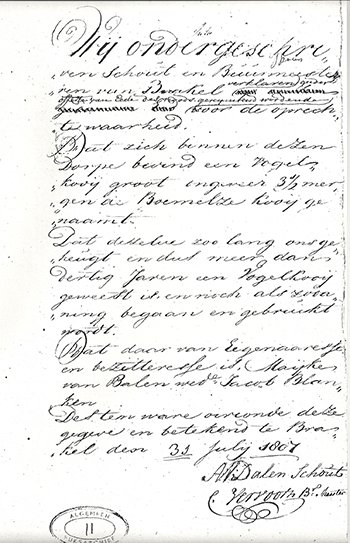 Wij ondergeschre
„ven Schout en Buurmeeste
„ren van Brakel verklaren onder
offerte van Eede desnoods gerequireerd wordende
voor de oprech
„te waarheid.
Dat zich binnen dezen
Dorpe bevind een Vogel
„kooij groot ongeveer 3½ mer
„gen de Boemelze kooij ge
„naamt.
Dat dezelve zoo lang onsge
„heugt en dus meer dan
dertig Jaren een Vogelkooij
geweest is en noch als zooda
„ning begaan en gebruickt
wordt.
Dat daar van Eegenaaresse
en bezitteresse is, Maijke
van Balen wede Jacob Blan
„ken
Des ten ware oirconde deze
gegeve en betekend te Bra
„kel den 31 July 1807
AV Dalen Schout
C. Vervoorn Br Meester
ALGEMEEN
11